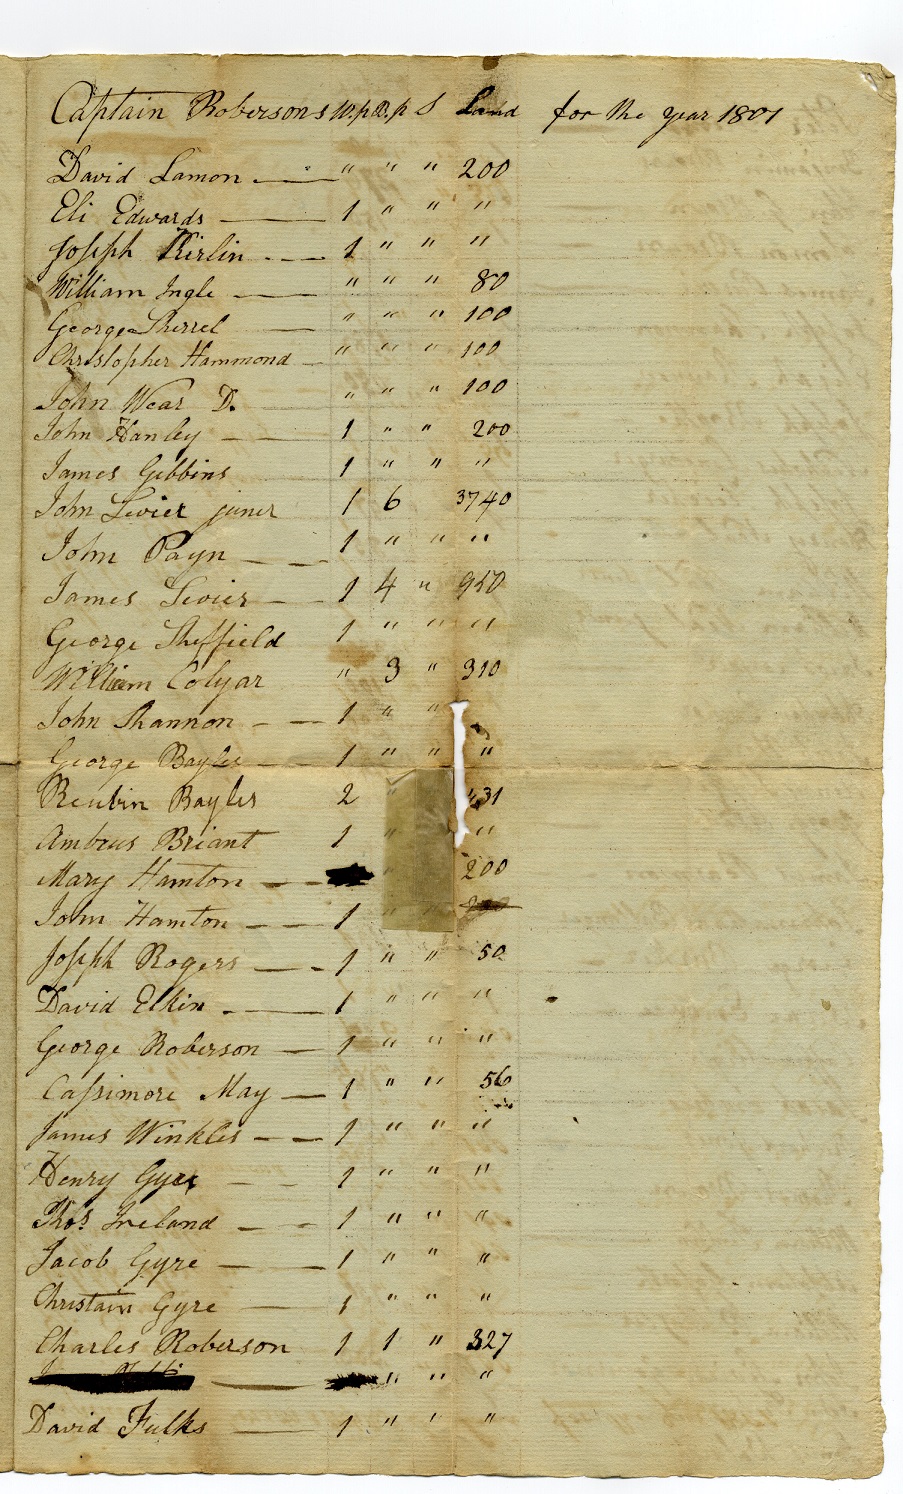 Captain Robersons W.p B.p S Land for the year 1801
David Lamon " " " 200
Eli Edwards 1 " " "
Joseph Kirlin 1 " " "
William Ingle " " " 80
George Sherrel " " " 100
Christopher Hammond " " " 100
John Wear D. " " " 100
John Hanley 1 " " 200
James Gibbins 1 " " "
John Sevier juner 1 6 3740
John Payn 1 " " "
James Sevier 1 4 " 950
George Sheffield 1 " " "
William Colyar " 3 " 310
John Shannon 1 " "
George Bayles 1 " " "
Reubin Bayles 2 " 431
Ambrus Briant 1 " "
Mary Hamton " 200
John Hamton 1 " "
Joseph Rogers 1 " " 50
David Elkin 1 " " "
George Roberson 1 " " "
Cassimore May 1 " " 56
James Winkles 1 " " "
Henry Gyer 1 " " "
Thos Ireland 1 " " "
Jacob Gyre 1 " " "
Christain Gyre 1 " " "
Charles Roberson 1 1 " 327
" " "
David Fulks 1 " " "